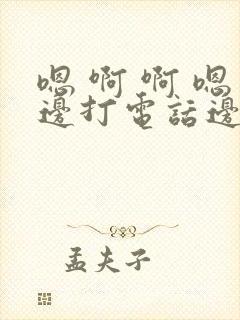 嗯啊啊嗯
邊打電話邊
孟夫子